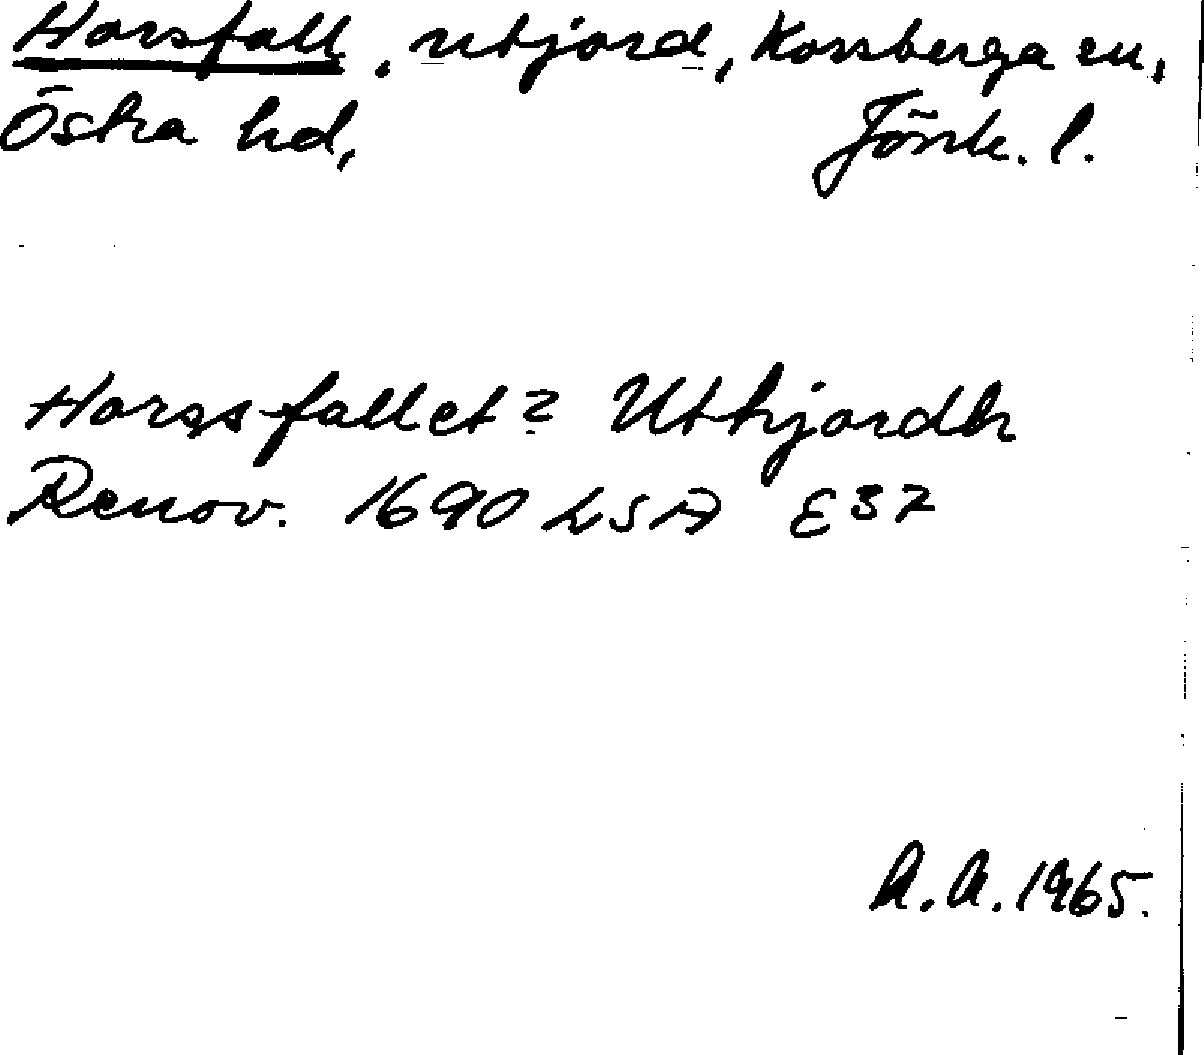 Horsfall, utjord, Korsberga sn,
Östra hd, Jönk. l.
Horssfallet? Uthjordh
Renov. 1690 LSA E37
A.A. 1965.